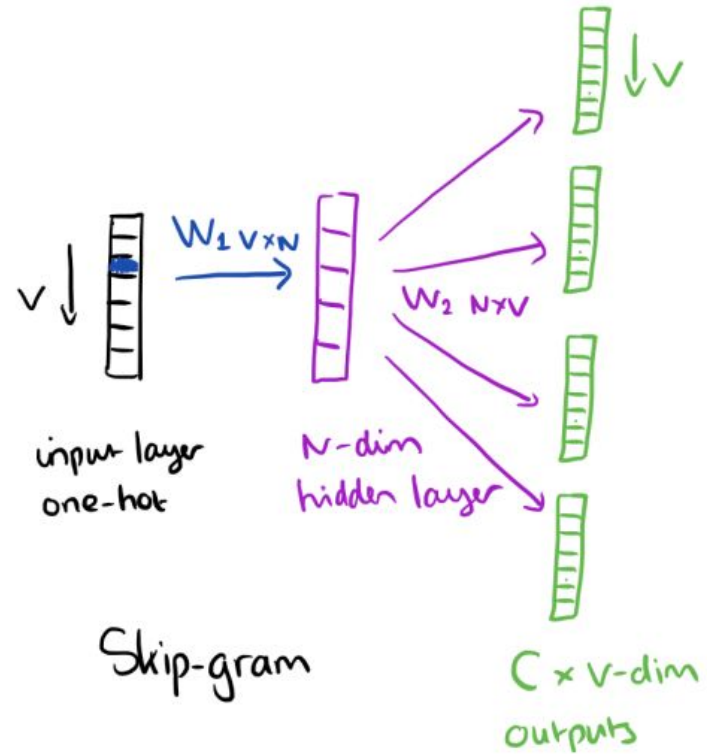 V
W₁ V×N
V
W₂ N×V
input layer
one-hot
N-dim
hidden layer
Skip-gram
C × V-dim
outputs